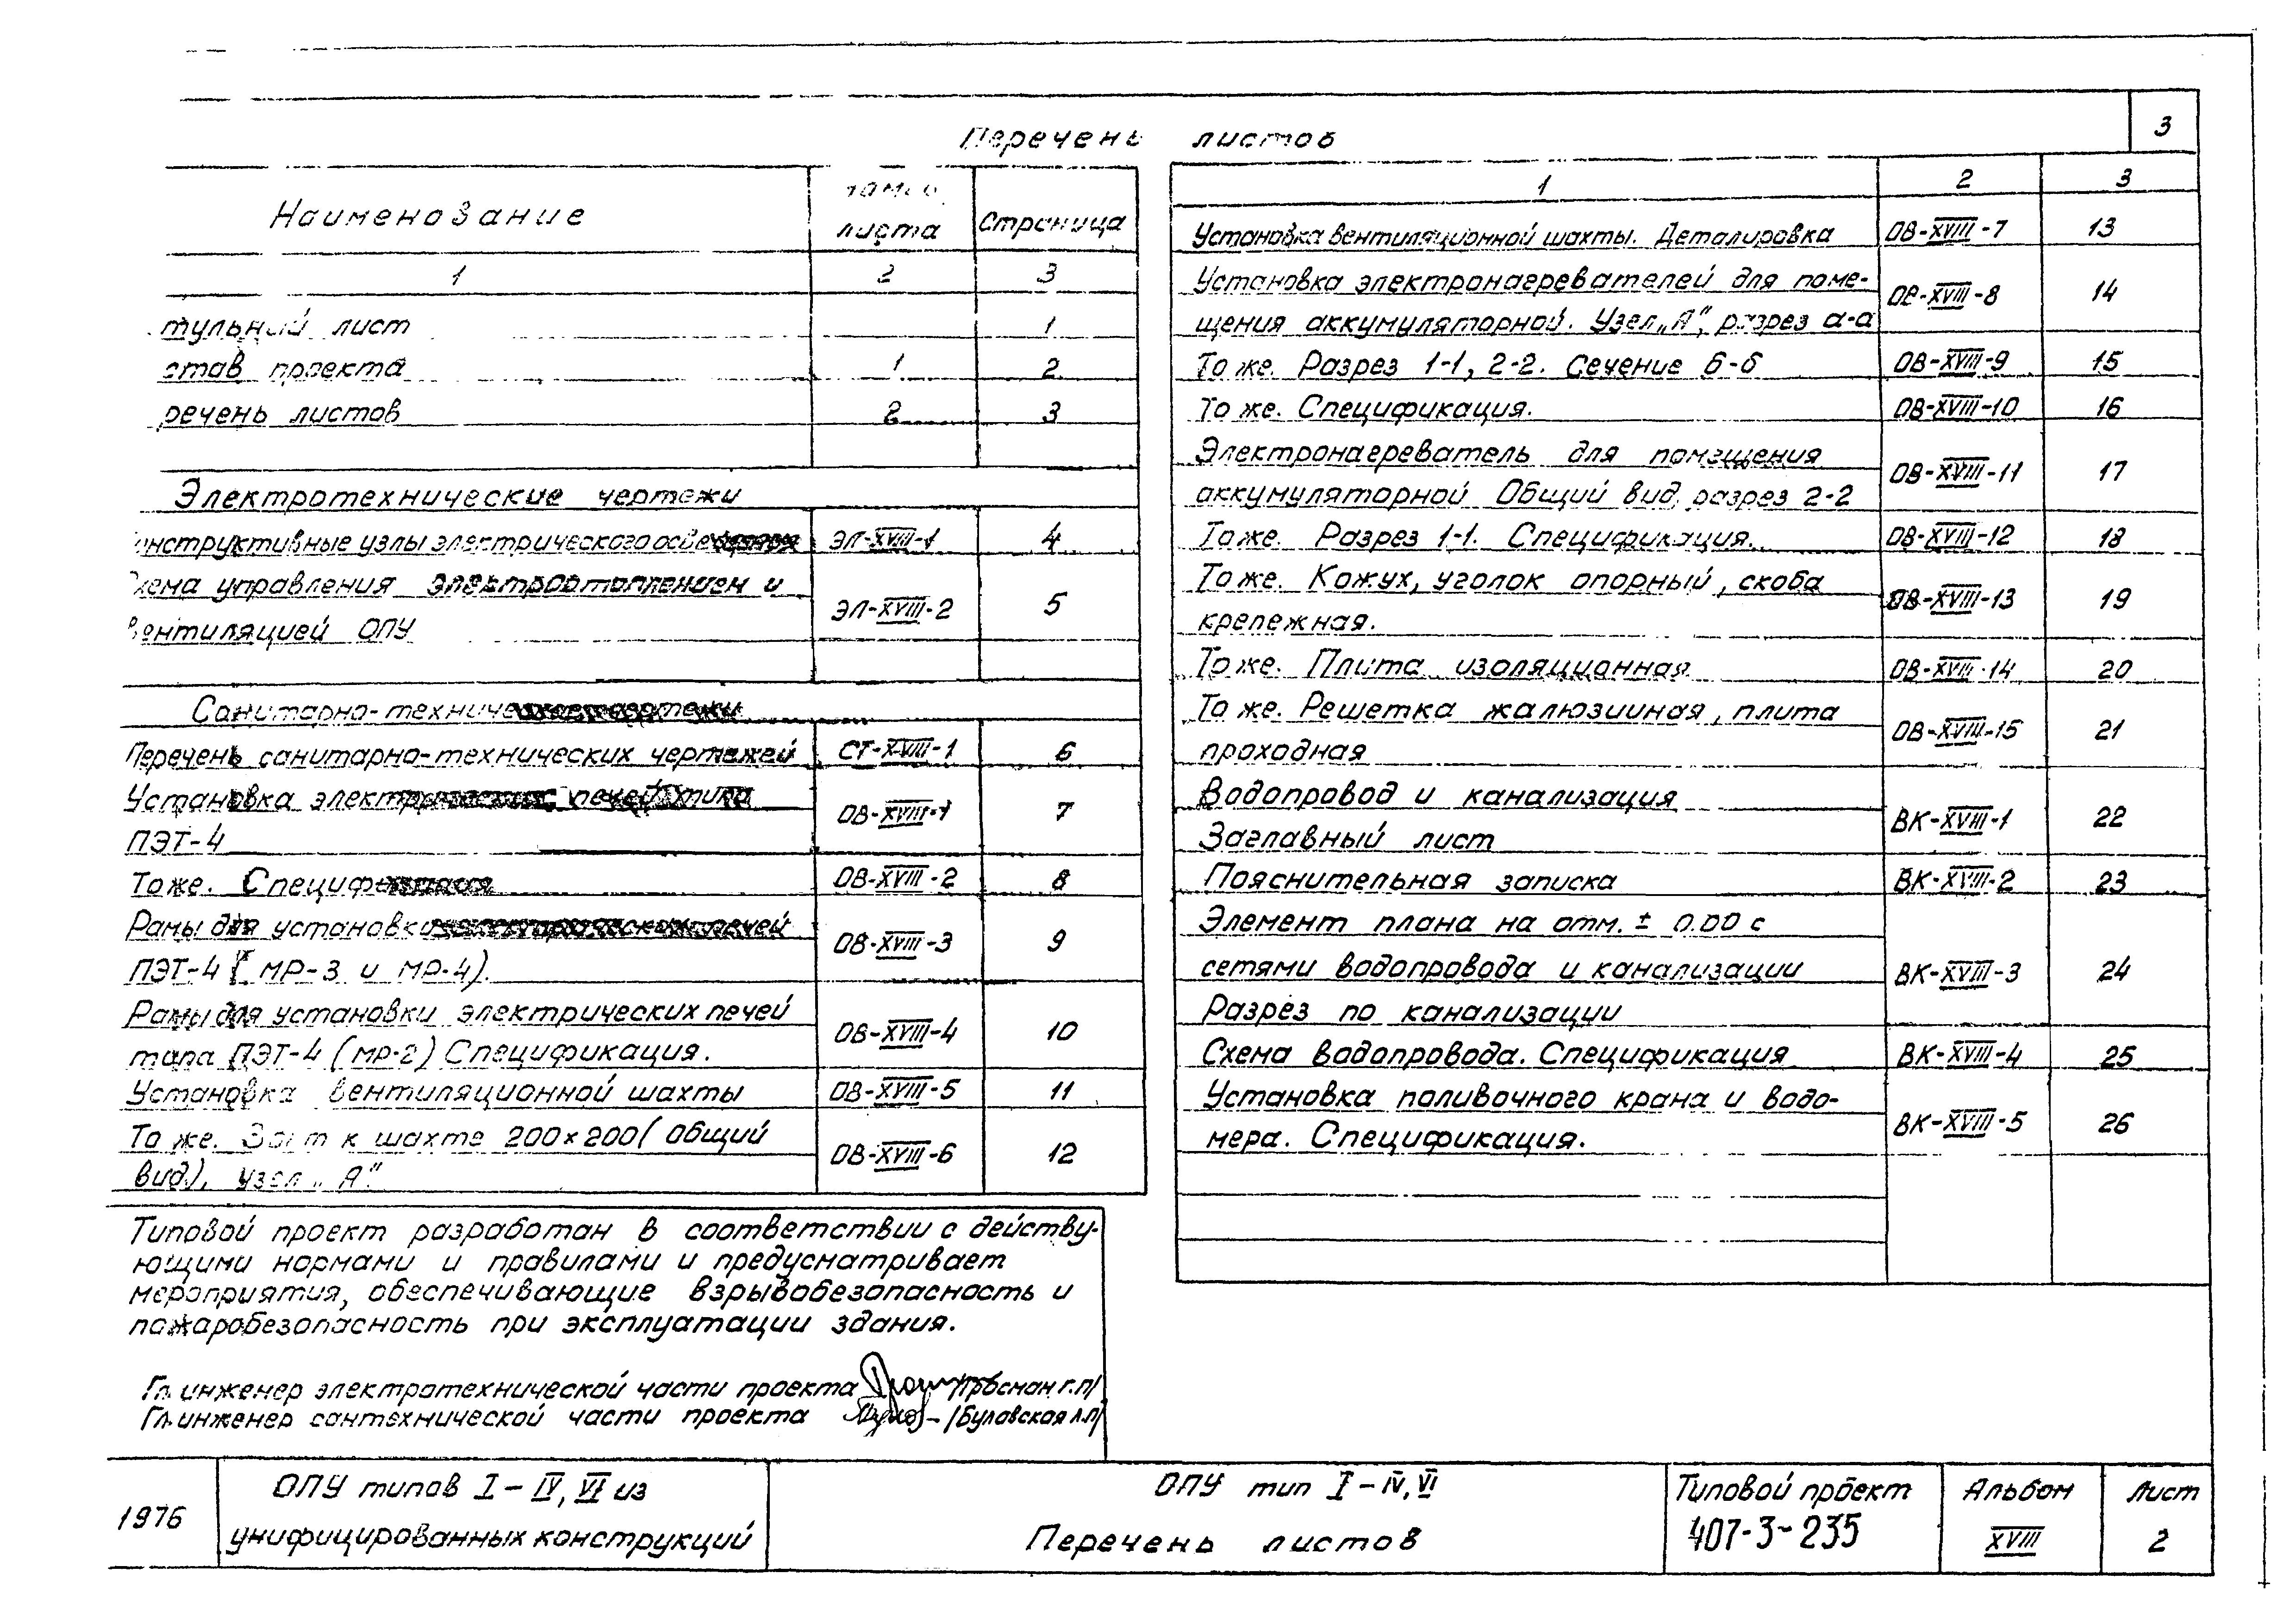 3
Перечень листов
Наименование
листа
Страница
1 2 3
тульный лист 1
став проекта 1 2
речень листов 2 3
Электротехнические чертежи
нструктивные узлы электрического ЭЛ-XVIII-1 4
хема управления электроотоплением и
вентиляцией ОПУ ЭЛ-XVIII-2 5
Санитарно-технические чертежи
Перечень санитарно-технических чертежей СТ-XVIII-1 6
Установка электрических печей типа
ПЭТ-4 ОВ-XVIII-1 7
То же. Спецификация ОВ-XVIII-2 8
Рамы для установки электрических печей
ПЭТ-4 (МР-3 и МР-4). ОВ-XVIII-3 9
Рамы для установки электрических печей
типа ПЭТ-4 (МР-2) Спецификация. ОВ-XVIII-4 10
Установка вентиляционной шахты ОВ-XVIII-5 11
То же. к шахте 200×200 (Общий
вид), узел „А" ОВ-XVIII-6 12
1 2 3
Установка вентиляционной шахты. Деталировка ОВ-XVIII-7 13
Установка электронагревателей для поме-
щения аккумуляторной. Узел „А", разрез а-а ОВ-XVIII-8 14
То же. Разрез 1-1, 2-2. Сечение б-б ОВ-XVIII-9 15
То же. Спецификация. ОВ-XVIII-10 16
Электронагреватель для помещения
аккумуляторной Общий вид, разрез 2-2 ОВ-XVIII-11 17
То же. Разрез 1-1. Спецификация. ОВ-XVIII-12 18
То же. Кожух, уголок опорный, скоба
крепежная. ОВ-XVIII-13 19
То же. Плита изоляционная ОВ-XVIII-14 20
То же. Решетка жалюзийная, плита
проходная ОВ-XVIII-15 21
Водопровод и канализация
Заглавный лист ВК-XVIII-1 22
Пояснительная записка ВК-XVIII-2 23
Элемент плана на отм. ± 0.00 с
сетями водопровода и канализации ВК-XVIII-3 24
Разрез по канализации
Схема водопровода. Спецификация ВК-XVIII-4 25
Установка поливочного крана и водо-
мера. Спецификация. ВК-XVIII-5 26
Типовой проект разработан в соответствии с действу-
ющими нормами и правилами и предусматривает
мероприятия, обеспечивающие взрывобезопасность и
пожаробезопасность при эксплуатации здания.
Гл. инженер электротехнической части проекта /Гросман Г.П/
Гл. инженер сантехнической части проекта /Буловская Л.П/
1976
ОПУ типов I – IV, VI из
унифицированных конструкций
ОПУ тип I – IV, VI
Перечень листов
Типовой проект
407-3-235
Альбом
XVIII
Лист
2